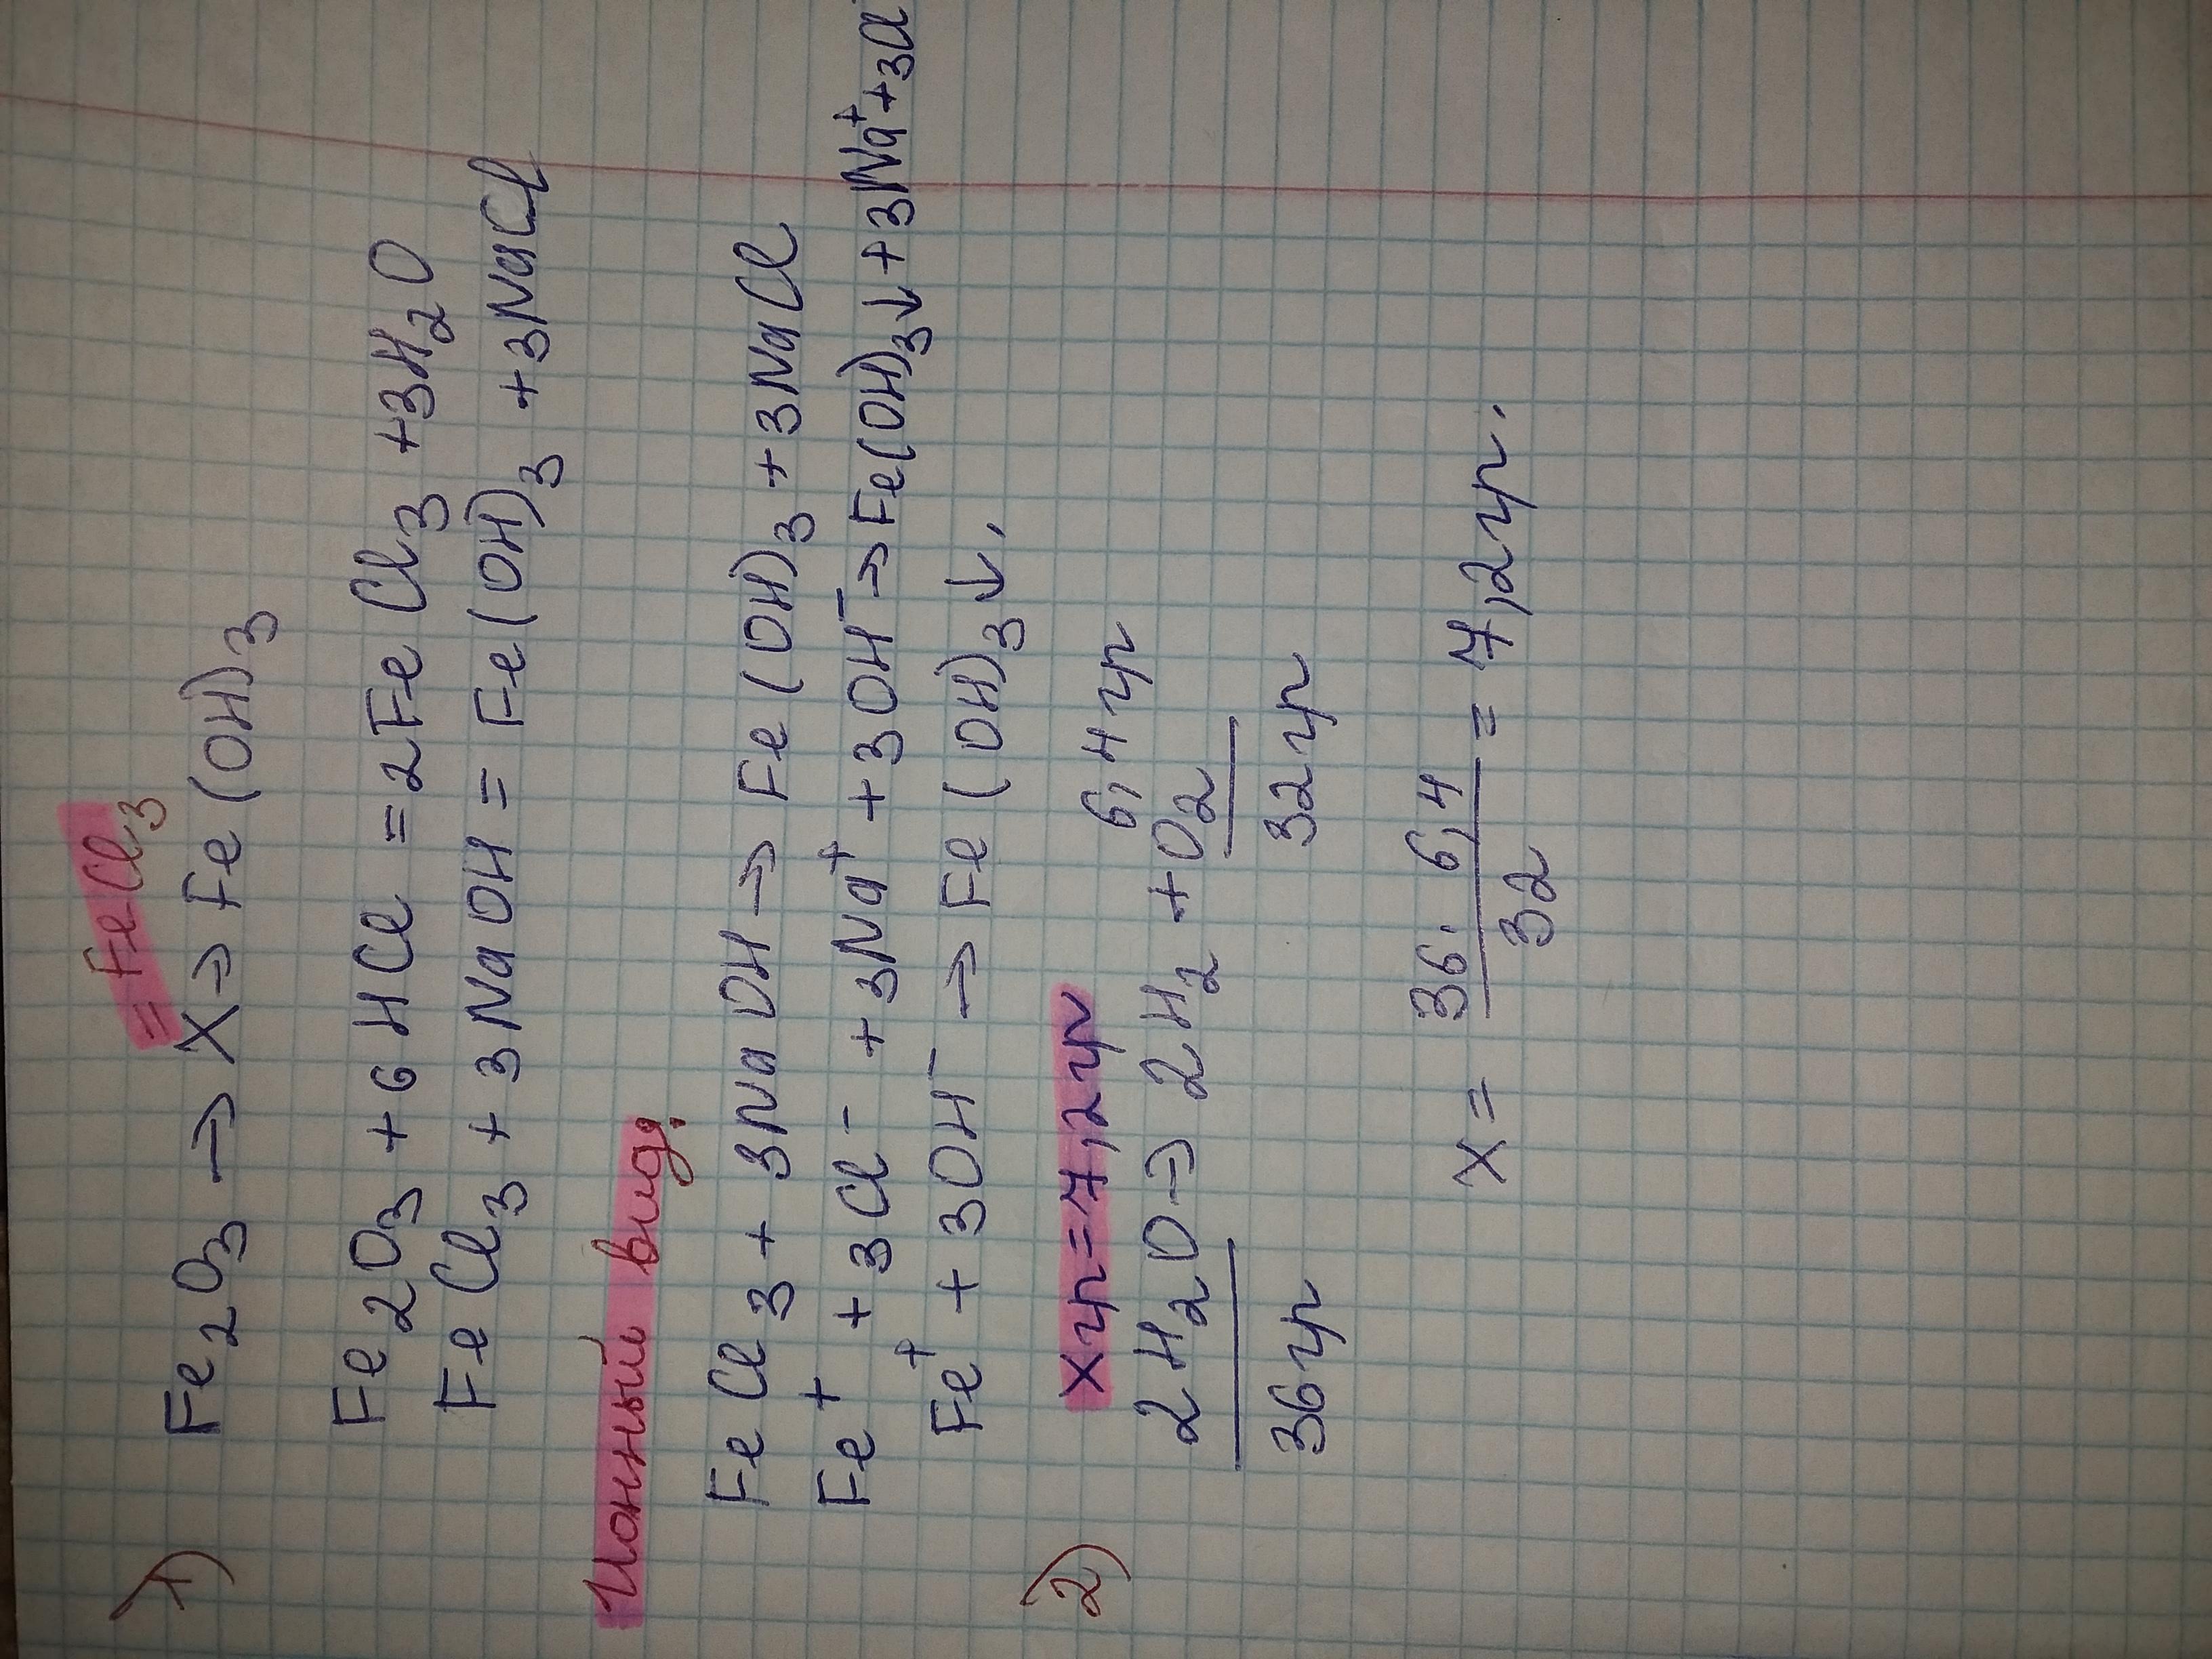 = FeCl₃
1) Fe₂O₃ → X → Fe(OH)₃
Fe₂O₃ + 6HCl = 2FeCl₃ + 3H₂O
FeCl₃ + 3NaOH = Fe(OH)₃ + 3NaCl
Ионный вид:
FeCl₃ + 3NaOH → Fe(OH)₃ + 3NaCl
Fe⁺ + 3Cl⁻ + 3Na⁺ + 3OH⁻ → Fe(OH)₃↓ + 3Na⁺ + 3Cl
Fe⁺ + 3OH⁻ → Fe(OH)₃↓.
2) x гр = 7,2 гр 6,4 гр
2H₂O → 2H₂ + O₂
36 гр 32 гр
x = 36 · 6,4 / 32 = 7,2 гр.